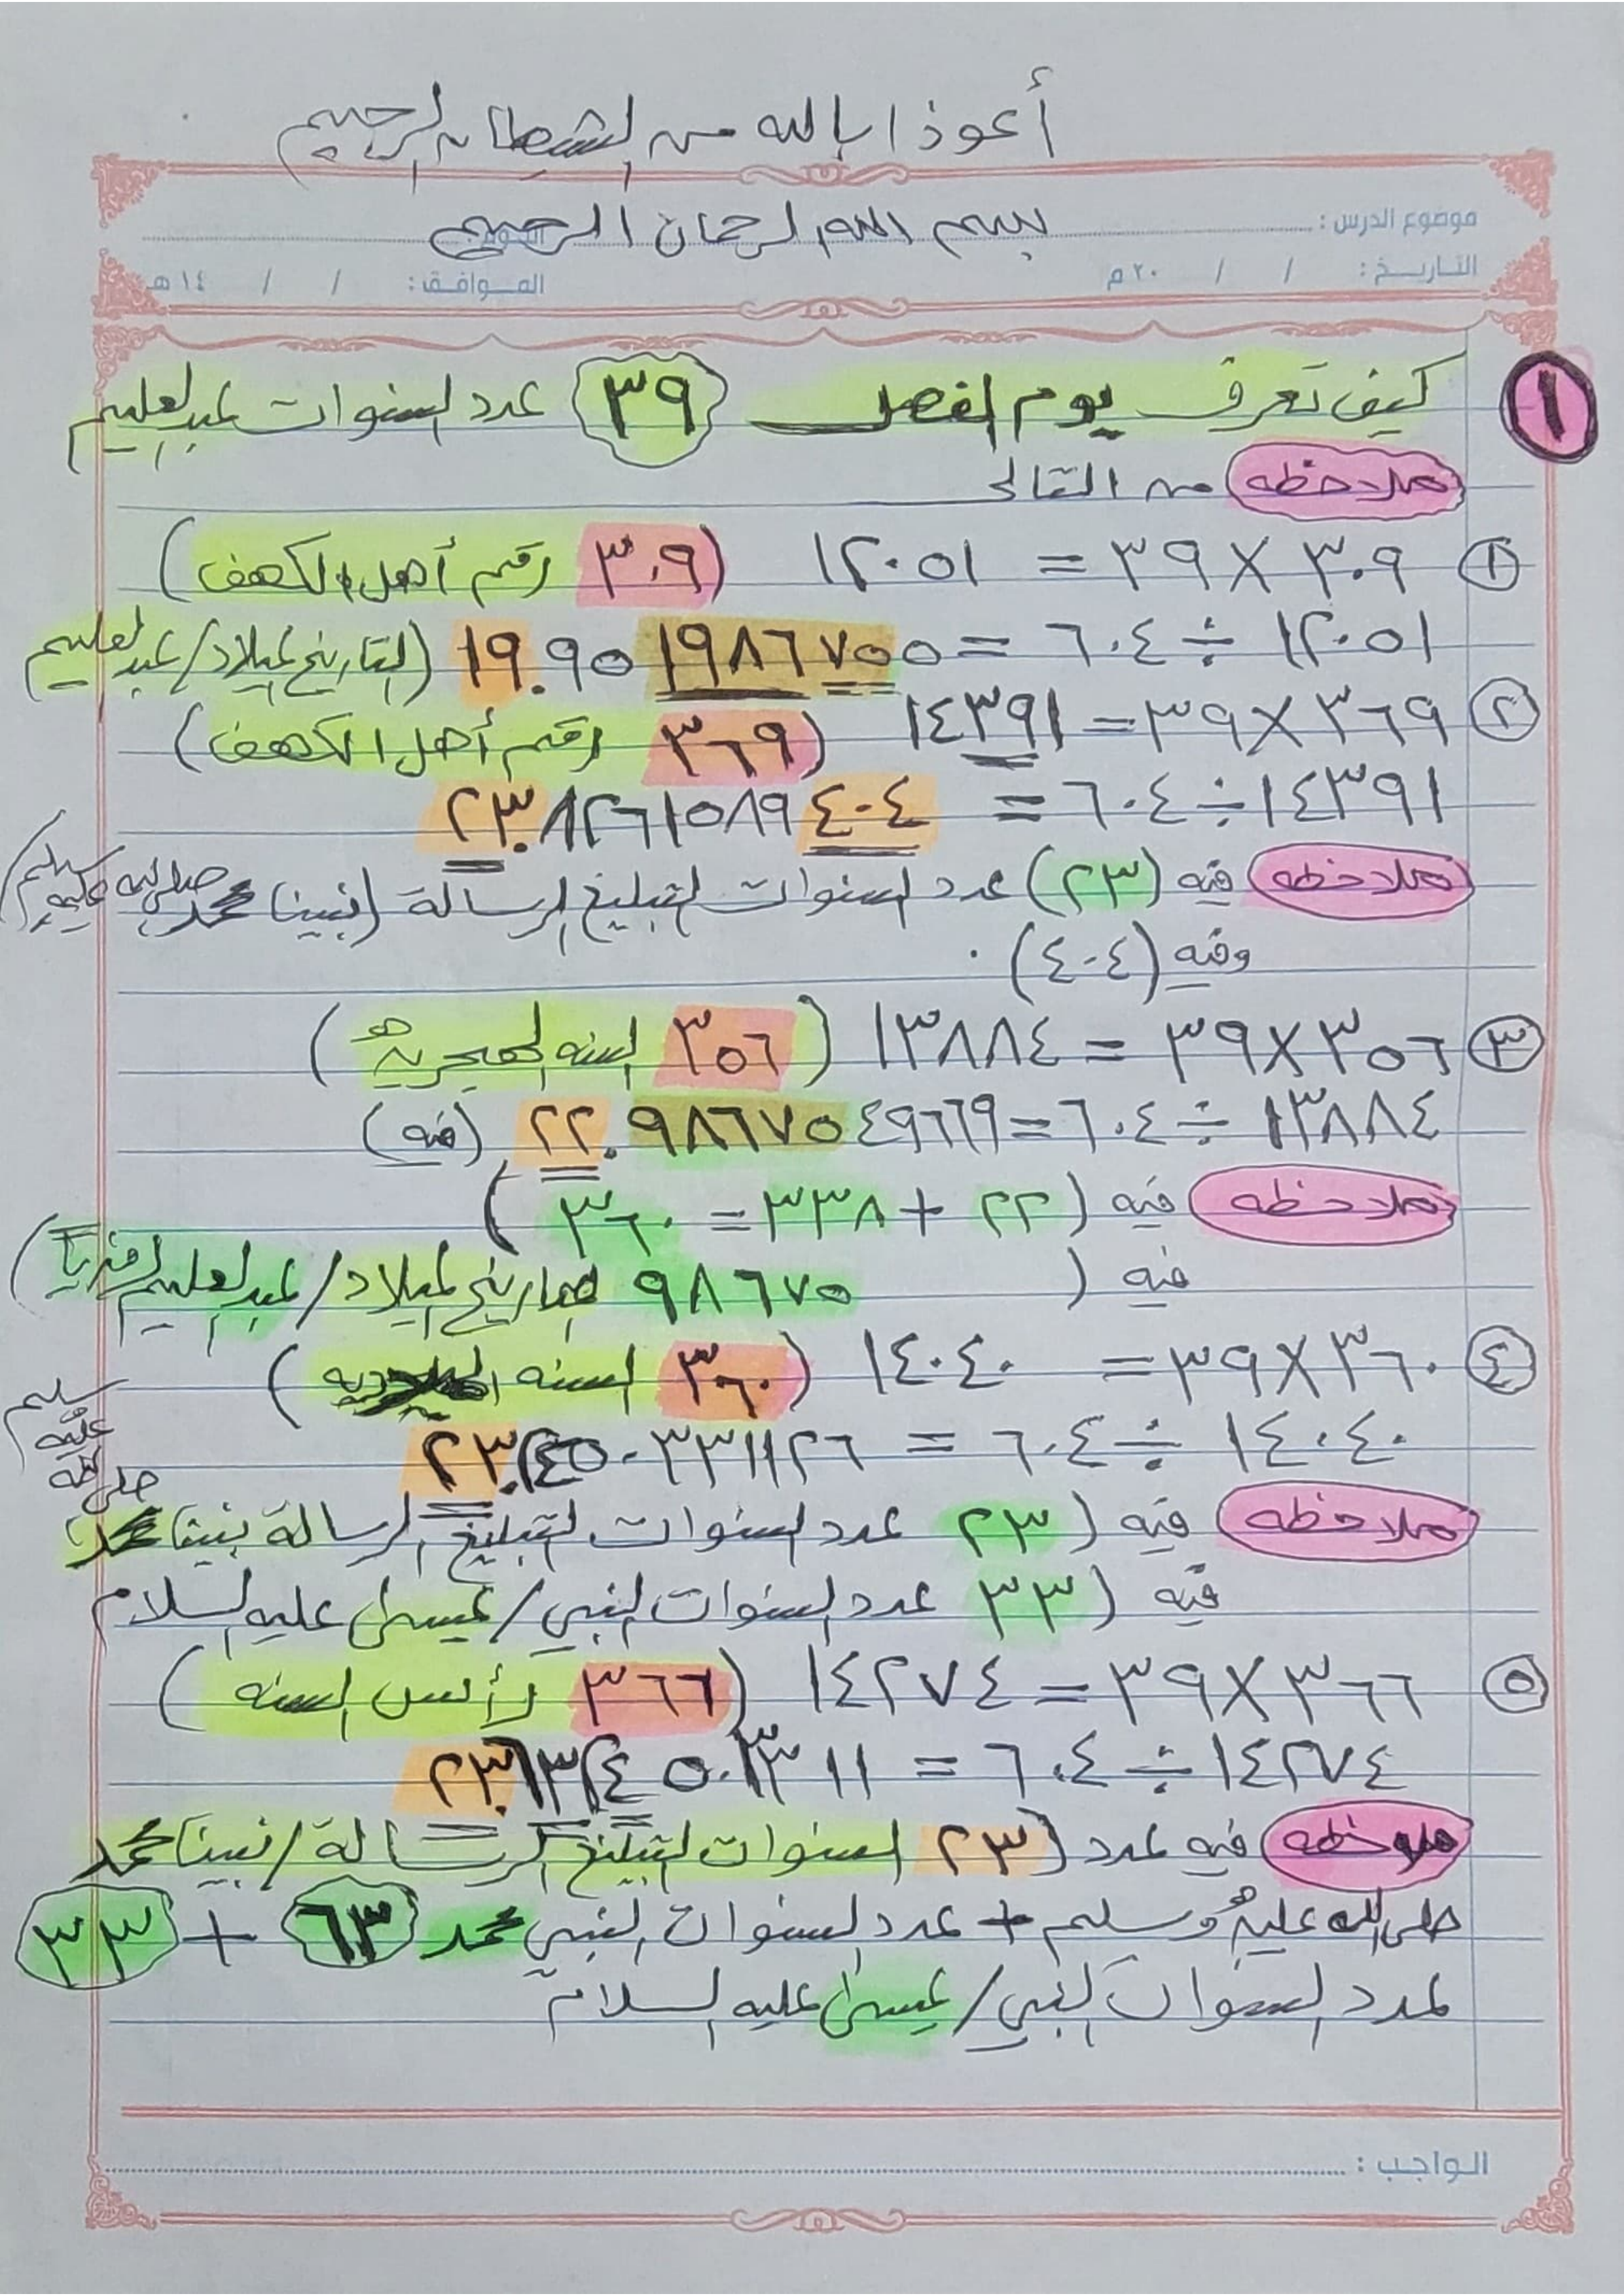 أعوذ ا بالله من الشيطان الرجيم
بسم الله الرحمان الرحيم
موضوع الدرس : اليوم :
التاريخ : / / ٢٠ م الموافق : / / ١٤ هـ
١ كيف تعرف يوم الفصل ٣٩ عدد السنوات عبدالعليم
ملاحظه من التالي
١ ٣٠٩ × ٣٩ = ١٢٠٥١ (٣٠٩ رقم أهل الكهف)
١٢٠٥١ ÷ ٦٠٤ = ١٩.٩٥١٩٨٦٧٥٥ (التاريخ لميلاد/عبدالعليم
٢ ٣٦٩ × ٣٩ = ١٤٣٩١ (٣٦٩ رقم أهل الكهف)
١٤٣٩١ ÷ ٦٠٤ = ٢٣.٨٢٦١٥٨٩٤٠٤
ملاحظه فيه (٢٣) عدد السنوات لتبليغ الرسالة (نبينا محمد صلى الله عليه وسلم)
وفيه (٤٠٤) .
٣ ٣٥٦ × ٣٩ = ١٣٨٨٤ (٣٥٦ السنه الهجريه)
١٣٨٨٤ ÷ ٦٠٤ = ٢٢.٩٨٦٧٥٤٩٦٦٩ (فيه)
ملاحظه فيه (٢٢ + ٣٣٨ = ٣٦٠)
فيه ( ٩٨٦٧٥ تاريخ لميلاد/عبدالعليم)
٤ ٣٦٠ × ٣٩ = ١٤٠٤٠ (٣٦٠ السنه)
١٤٠٤٠ ÷ ٦٠٤ = ٢٣.٢٤٥٠٣٣١١٢٦
ملاحظه فيه (٢٣ عدد السنوات لتبليغ الرسالة نبينا محمد صلى الله عليه وسلم
فيه (٣٣ عدد السنوات النبي/عيسى عليه السلام
٥ ٣٦٦ × ٣٩ = ١٤٢٧٤ (٣٦٦ رأس السنه)
١٤٢٧٤ ÷ ٦٠٤ = ٢٣.٦٣٢٤٥٠٣٣١١
ملاحظه فيه عدد (٢٣ السنوات لتبليغ الرسالة/نبينا محمد
صلى الله عليه وسلم + عدد السنوات النبي محمد ٦٣ + ٣٣
عدد السنوات النبي/عيسى عليه السلام
الواجب :